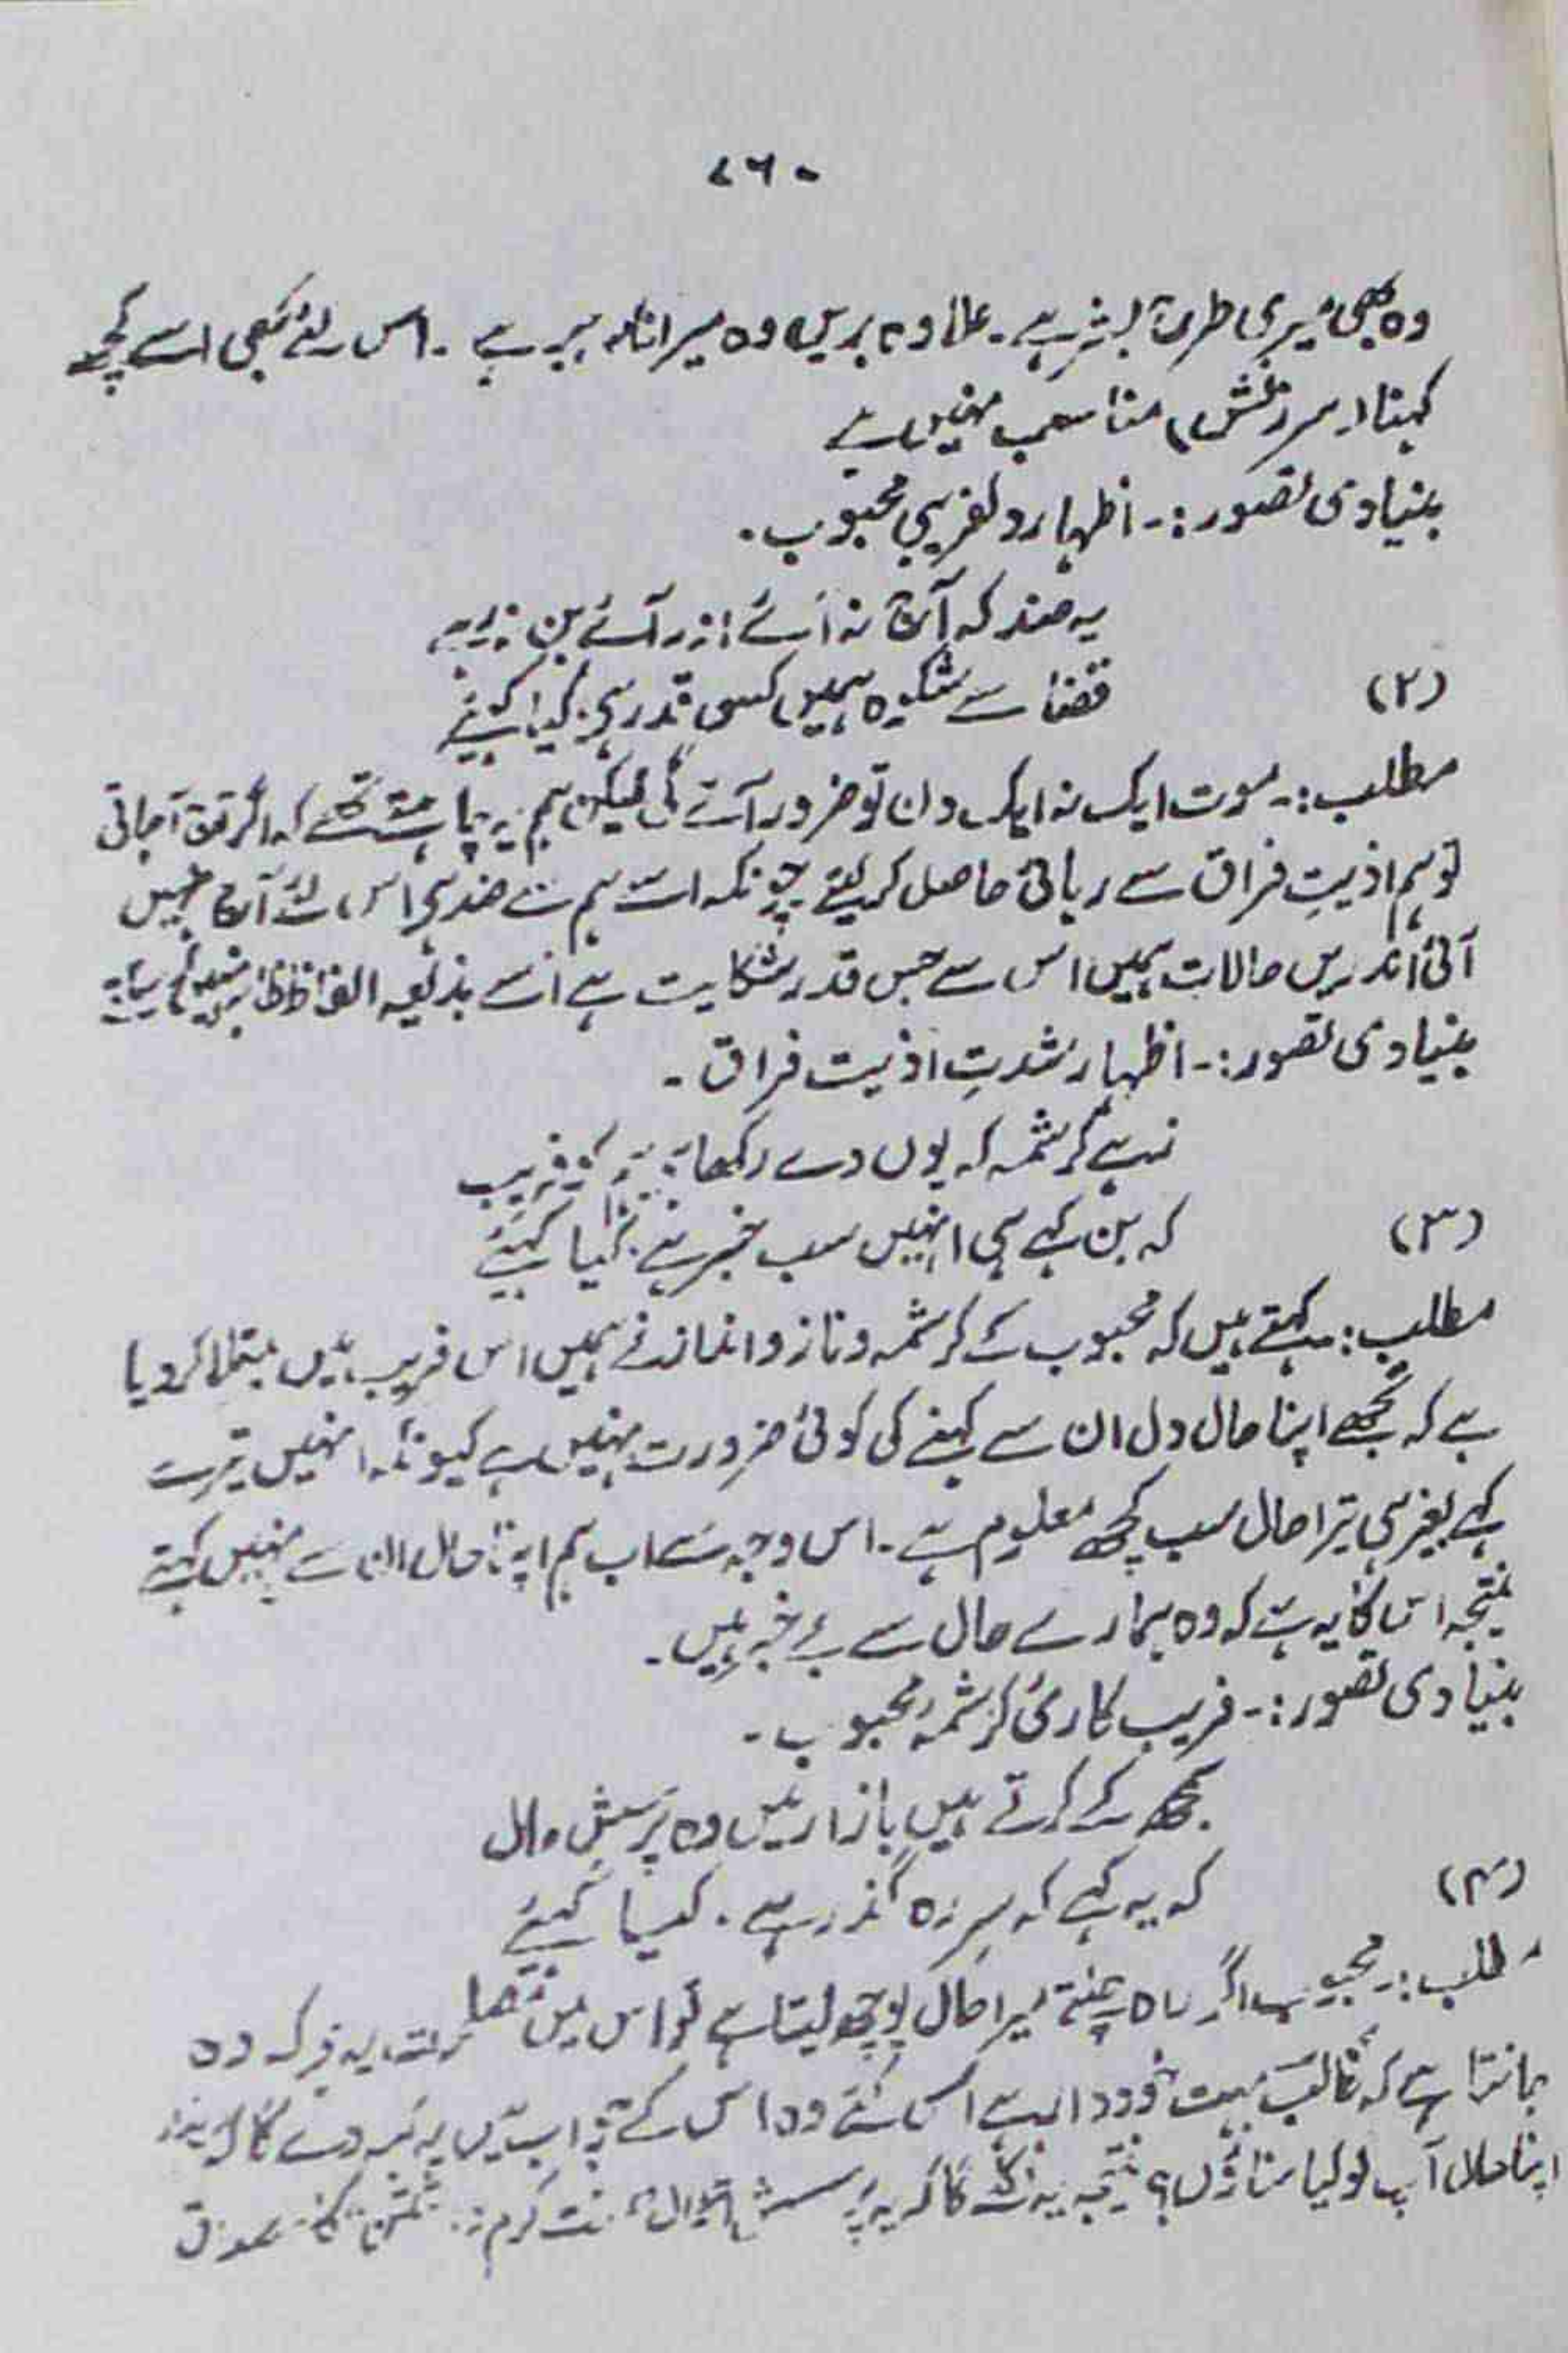 ۷۶۰
وہ بھی میری طرح بشر ہے۔ علاوہ بریں وہ میرا نامہ بر ہے۔ اس لئے بھی اسے کچھ
کہنا (سرزنش) مناسب نہیں ہے
بنیادی تصور:۔ اظہار دلفریبی محبوب۔
یہ ضد کہ آج نہ آئے اور آئے بن نہ رہے
(۲)
قضا سے شکوہ ہمیں کس قدر ہے، کیا کہئے
مطلب:۔ موت ایک نہ ایک دن تو ضرور آئے گی لیکن ہم یہ چاہتے تھے کہ اگر آج آجاتی
تو ہم اذیتِ فراق سے رہائی حاصل کرلیتے چونکہ اسے ہم سے ضد ہے اس لئے آج نہیں
آئی اندریں حالات ہمیں اس سے جس قدر شکایت ہے اُسے بذریعہ الفاظ ظاہر نہیں کیا
بنیادی تصور:۔ اظہار شدتِ اذیت فراق۔
زہے کرشمہ کہ یوں دے رکھا ہے فریب
(۳)
کہ بن کہے ہی انہیں سب خبر ہے، کیا کہئے
مطلب:۔ کہتے ہیں کہ محبوب کے کرشمہ و ناز و انداز نے ہمیں اس فریب میں مبتلا کر دیا
ہے کہ تجھے اپنا حال دل ان سے کہنے کی کوئی ضرورت نہیں ہے کیونکہ انہیں تیرے
کہے بغیر ہی تیرا حال سب کچھ معلوم ہے۔ اس وجہ سے اب ہم اپنا حال ان سے نہیں کہتے
نتیجہ اس کا یہ ہے کہ وہ ہمارے حال سے بے خبر ہیں۔
بنیادی تصور:۔ فریب کاریٔ کرشمۂ محبوب۔
سمجھ کے کرتے ہیں بازار میں وہ پرسشِ حال
(۴)
کہ یہ کہے کہ سرِ رہ گذر ہے، کیا کہئے
مطلب:۔ محبوب اگر راہ چلتے میرا حال پوچھ لیتا ہے تو اس میں یہ کہ وہ
جانتا ہے کہ غالب بہت خوددار ہے اس لئے وہ اس کے جواب میں یہ کہہ دے گا کہ
اپنا حال آپ کو کیا سناؤں؟ نتیجہ یہ نکلے گا کہ یہ پرسش